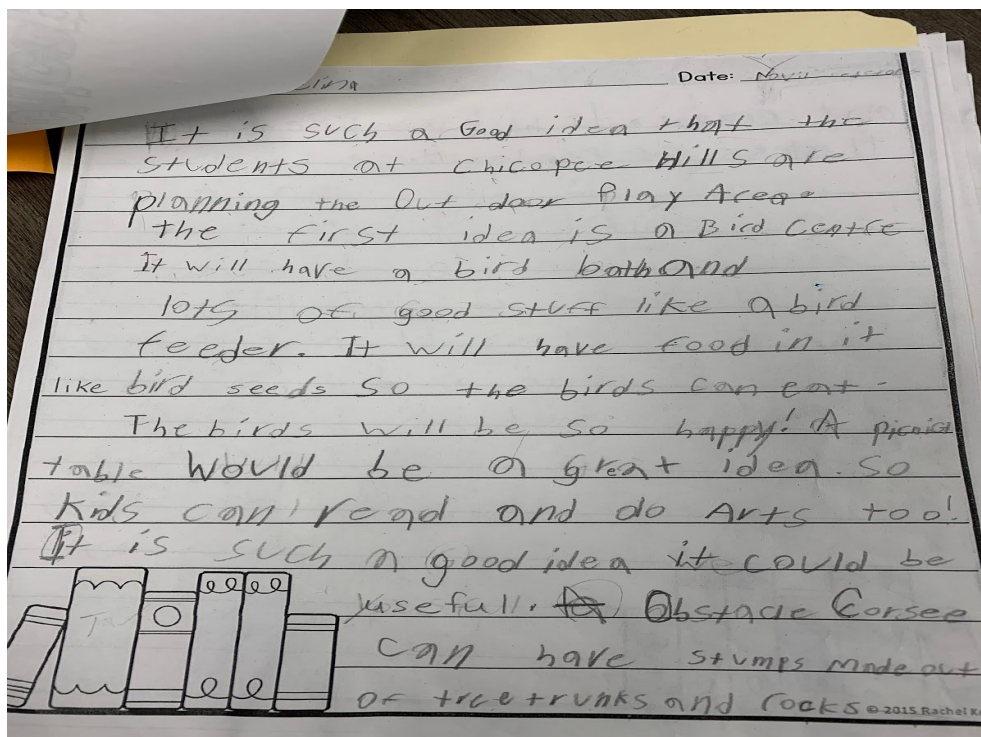 Date: Nov
It is such a Good idea that the
students at Chicopee Hills are
planning the Out door Play Area.
the first idea is a Bird Centre
It will have a bird bath and
lots of good stuff like a bird
feeder. It will have food in it
like bird seeds so the birds can eat.
The birds will be so happy! A picnict
table Would be a great idea. so
kids can read and do Arts too!
It is such a good idea it could be
usefull. Obstacle Corsee
can have stumps made out
of tree trunks and rocks © 2015 Rachel